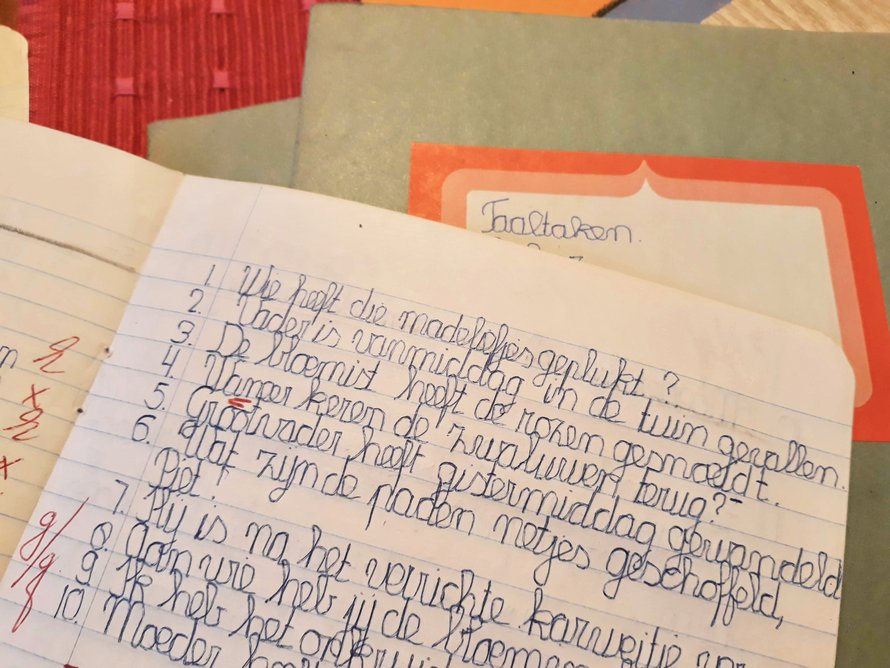 Taaltaken.
1. Wie heeft die madeliefjes geplukt?
2. Vader is vanmiddag in de tuin gevallen.
3. De bloemist heeft de rozen gesnoeidt.
4. Waneer keren de zwaluwen terug?
5. Grootvader heeft gistermiddag gewandeld
6. Wat zijn de paden netjes geschoffeld,
Piet!
7. Hij is na het verrichte karweitje
8. Aan wie heb jij de bloemen
9. Ik heb het
10. Moeder
g/g.